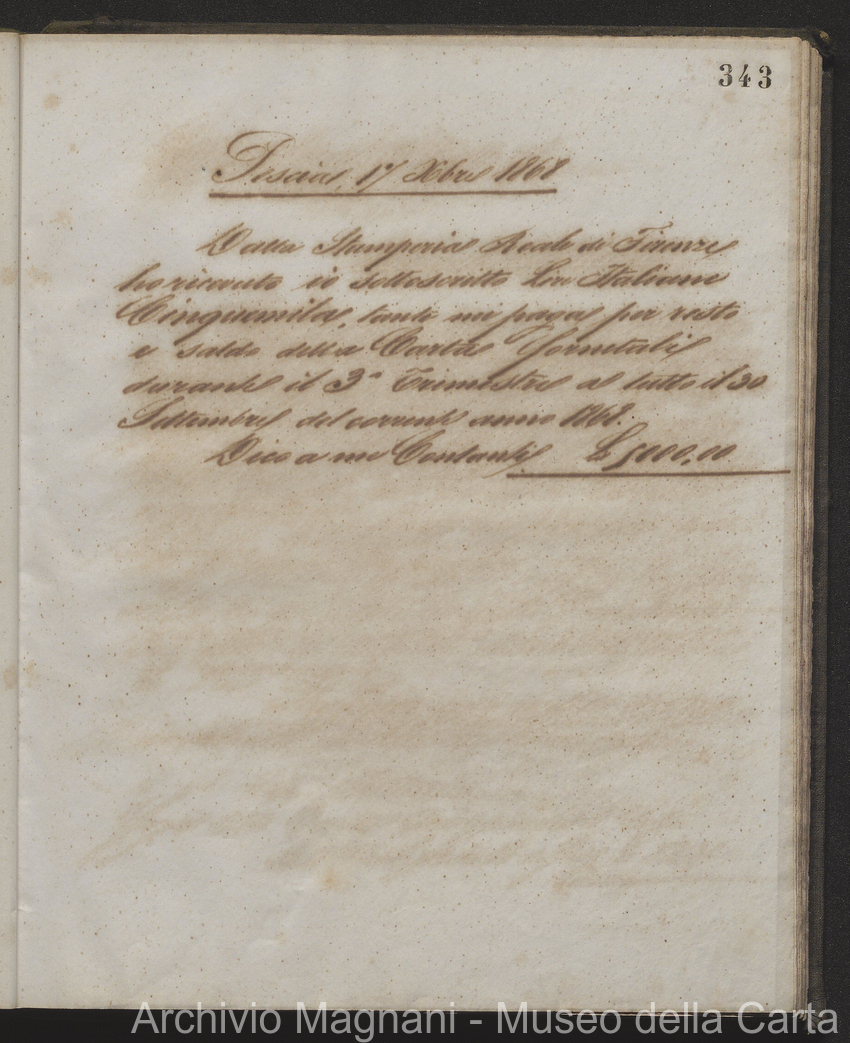 343
Pescia, 17 Xbre 1868
Dalla Stamperia Reale di Firenze
ho ricevuto io sottoscritto Lire Italiane
Cinquemila, tante mi paga per resto
e saldo della Carta
durante il 3° Trimestre a tutto il 30
Settembre del corrente anno 1868.
Dico a me Contanti £ 5000,00
Archivio Magnani - Museo della Carta